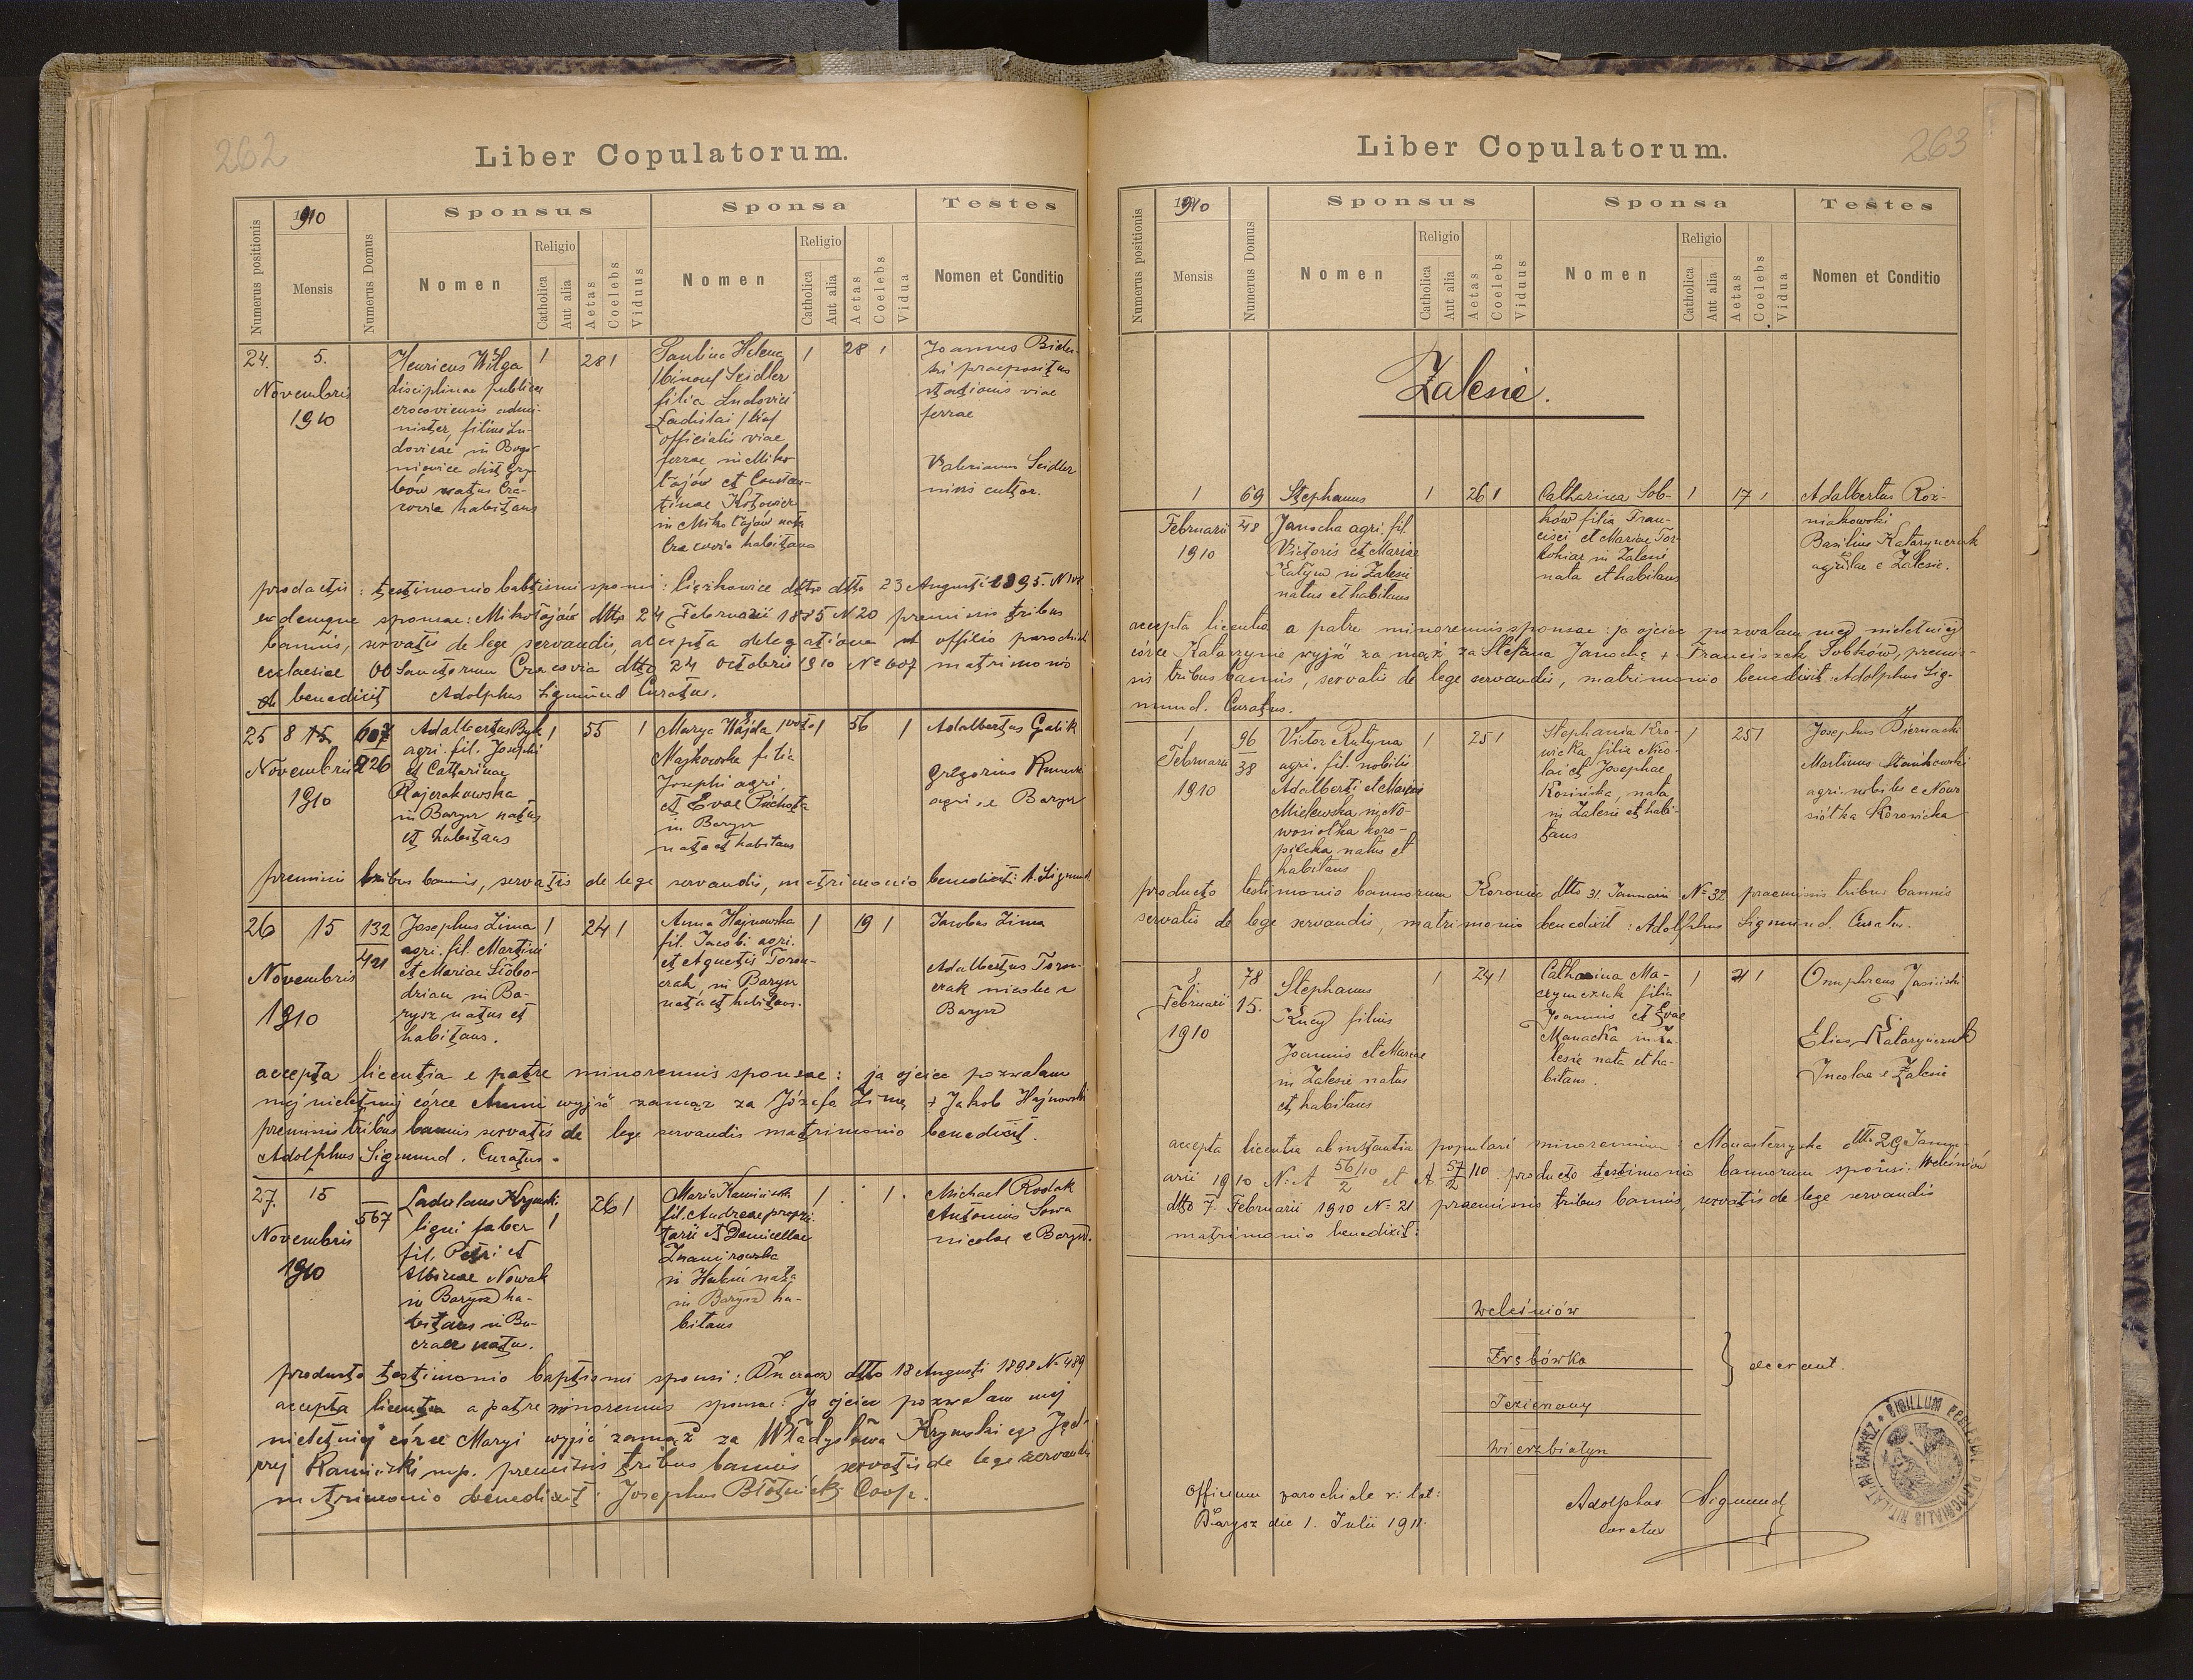 262
Liber Copulatorum.
Numerus positionis
1910
Mensis
Numerus Domus
Sponsus
Nomen
Religio
Catholica
Aut alia
Aetas
Coelebs
Viduus
Sponsa
Nomen
Religio
Catholica
Aut alia
Aetas
Coelebs
Vidua
Testes
Nomen et Conditio
24.
5.
Novembris
1910
Henricus Wilga
disciplinae publicae
cracoviensis admi-
nister filius Lu-
dovicae in Bogo-
niowice dist Gry-
bów natus Cra-
covia habitans
1
28 1
Paulina Helena
Seidler
filia Ludovici
Ladislai
officialis viae
ferrae in Miko-
łajów et Constan-
tinae
in Mikołajów nata
Cracovia habitans
1
28 1
Joannes
praepositus
stationis viae
ferrae
Valerianus Seidler
civis cultor.
productis: testimonio babtismi sponsi: Ciężkowice dtto 23 Augusti 1895. N
eodemque sponsae: Mikołajów dtto 24 Februarii 1885 N 20 premissis tribus
bannis, servatis de lege servandis, accepta delegatione ab officio parochiali
ecclaesiae OO Sanctorum Cracovia dtto 24 Octobris 1910 No 607 matrimonio
benedicit Adolphus Sigmund Curatus.
25
8
Novembris
1910
607
926
Adalbertus Byk
agri. fil. Josephi
et Catharinae
Rajczakowska
in Barysz natus
et habitans
1
55
1
Marya Wajda 1voto
Majkowska filia
Josephi agri.
et Evae Puchota
in Barysz
nata et habitans
1
56
1
Adalbertus Galik
Gregorius
agri. e Barysz
premissis tribus bannis, servatis de lege servandis, matrimonio benedicit: A. Sigmund.
26
15
Novembris
1910
132
421
Josephus Zima
agri. fil. Martini
et Mariae Siebo-
drian in Ba-
rysz natus et
habitans.
1
24 1
Anna Hajnowska
fil. Jacobi agri.
et Agnetis Toron-
czak, in Barysz
nata et habitans.
1
19 1
Jacobus Zima
Adalbertus Toron-
czak incolae e
Barysz
accepta licentia e patre minorennis sponsae: ja ojciec pozwalam
mej nieletniej córce Annie wyjść zamąż za Józefa Zimę + Jakob Hajnowski
premissis tribus bannis servatis de lege servandis matrimonio benedicit.
Adolphus Sigmund. Curatus.
27.
15
Novembris
1910
567
Ladislaus Krynski
ligni faber
fil. Petri et
Albinae Nowak
in Barysz ha-
bitans in Bu-
czacz natus.
1
26 1
Maria Kamińska
fil. Andreae proprie-
tarii et Danicellae
Znamirowska
in Hubin nata
in Barysz ha-
bitans
1
1.
Michael Rodak
Antonius Sowa
incolae e Barysz.
producto testimonio baptismi sponsi: Buczacz dtto 18 Augusti 1898 No 489
accepta licentia a patre minorennis sponsae: Ja ojciec pozwalam mej
nieletniej córce Maryi wyjść zamąż za Władysława Krynskiego Ję-
drzej Kamiński mp. premissis tribus bannis servatis de lege servandis
matrimonio benedixit: Josephus Błotnicki Coop.
263
Liber Copulatorum.
Numerus positionis
1910
Mensis
Numerus Domus
Sponsus
Nomen
Religio
Catholica
Aut alia
Aetas
Coelebs
Viduus
Sponsa
Nomen
Religio
Catholica
Aut alia
Aetas
Coelebs
Vidua
Testes
Nomen et Conditio
Zalesie.
1
Februarii
1910
69
48
Stephanus
Janocha agri. fil
Victoris et Mariae
in Zalesie
natus et habitans
1
26 1
Catharina Sob-
ków filia Fran-
cisci et Mariae
in Zalesie
nata et habitans
1
17 1
Adalbertus Roz-
niakowski
Basilius Katarynczuk
agricolae e Zalesie.
accepta licentia a patre minorennis sponsae: ja ojciec pozwalam mej nieletniej
córce Katarzynie wyjść za mąż za Stefana Janochę + Franciszek Sobków, premis-
sis tribus bannis, servatis de lege servandis, matrimonio benedixit: Adolphus Sig-
mund. Curatus.
1
Februarii
1910
96
38
Victor Rutyna
agri. fil. nobilis
Adalberti et Mariae
Milewska in No-
wosiołka koro-
piecka natus et
habitans
1
25 1
Stephania Kro-
nicka filia Nico-
lai et Josephae
Kosińska, nata
in Zalesie et habi-
tans
1
25 1
Josephus Biernacki
Martinus Stańkowski
agri. nobiles e Nowo
siółka Koropicka
producto testimonio bannorum Koropiec dtto 31. Januarii No 32 praemissis tribus bannis
servatis de lege servandis, matrimonio benedixit: Adolphus Sigmund. Curatus.
8.
Februarii
1910
78
15.
Stephanus
Kucy filius
Joannis et Mariae
in Zalesie natus
et habitans
1
24 1
Catharina Ma-
czymczuk filia
Joannis et Evae
Manacka in Za-
lesie nata et ha-
bitans.
1
21 1
Onuphreus Jasiński
Elias Katarynczuk
Incolae e Zalesie
accepta licentia ab instantia populari minorennium: Monasterzyska dtto 29 Janu-
arii 1910 No A 56/10 2 et A 57/10 2 producto testimonio bannorum sponsi: Weleśniów
dtto 7. Februarii 1910 No 21 praemissis tribus bannis, servatis de lege servandis
matrimonio benedixit:
Weleśniów
Zrębówka
Jezierzany
Wierzbiatyn
} deerant.
Officium parochiale r: lat:
Barysz die 1. Julii 1911.
Adolphus Sigmund
Curatus
SIGILLUM ECCLESIAE PAROCHIALIS RIT. LAT. IN BARYSZ